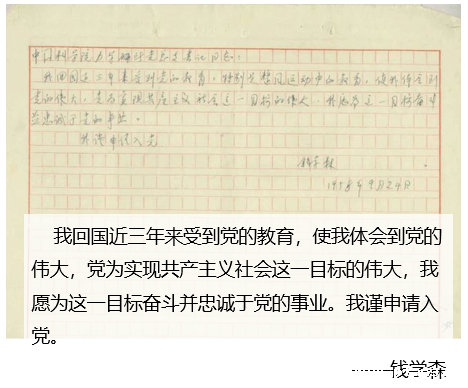 中国科学院力学研究所党总支书记同志：
我回国近三年来受到党的教育，特别是整风运动中的教育，使我体会到
党的伟大，党为实现共产主义社会这一目标的伟大，我愿为这一目标奋斗
并忠诚于党的事业。
我谨申请入党
钱学森
1958年9月24日
我回国近三年来受到党的教育，使我体会到党的
伟大，党为实现共产主义社会这一目标的伟大，我
愿为这一目标奋斗并忠诚于党的事业。我谨申请入
党。
--------钱学森